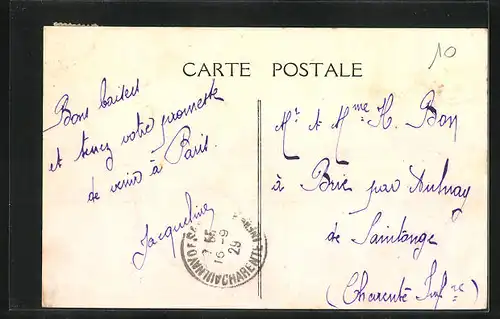 10
CARTE POSTALE
Bons baisers
et tenez votre promesse
de venir à Paris.
Jacqueline
Mr et Mme H. Bon
à Brie par Aulnay
de Saintonge
(Charente Infre)
16-9
29
CHARENTE INF